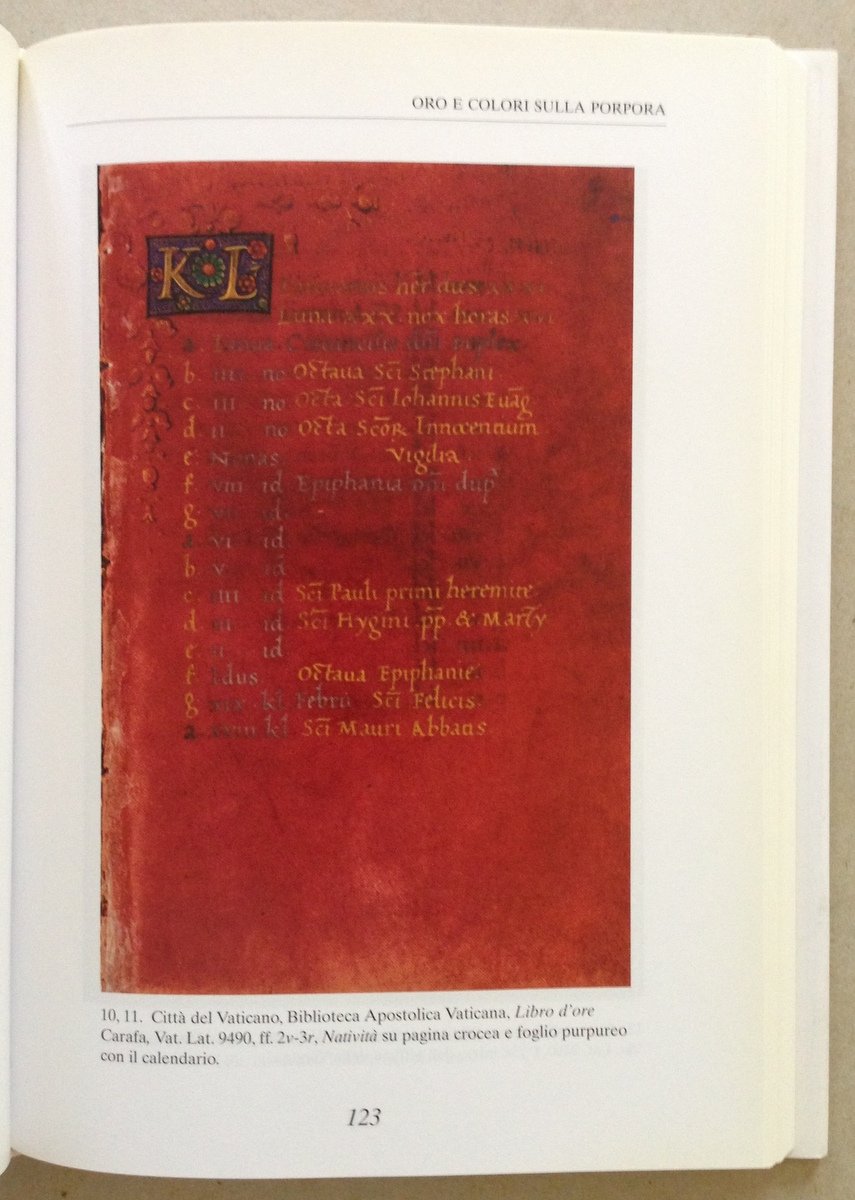 ORO E COLORI SULLA PORPORA
KL
her dies
Luna xxx nox horas xvi
a
b iiii no Octaua Sc̄i Stephani
c iii no Octa Sc̄i Iohannis Euāg
d ii no Octa Sc̄oꝝ Innocentium
e Nonas Vigilia
f viii id Epiphania dup
g id
a vi id
b v id
c iiii id Sc̄i Pauli primi heremite
d iii id Sc̄i Hygini pp̄ & Marty
e ii id
f Idus Octaua Epiphanie
g xix kl Febru Sc̄i Felicis
a xviii kl Sc̄i Mauri Abbatis
10, 11. Città del Vaticano, Biblioteca Apostolica Vaticana, Libro d'ore
Carafa, Vat. Lat. 9490, ff. 2v-3r, Natività su pagina crocea e foglio purpureo
con il calendario.
123